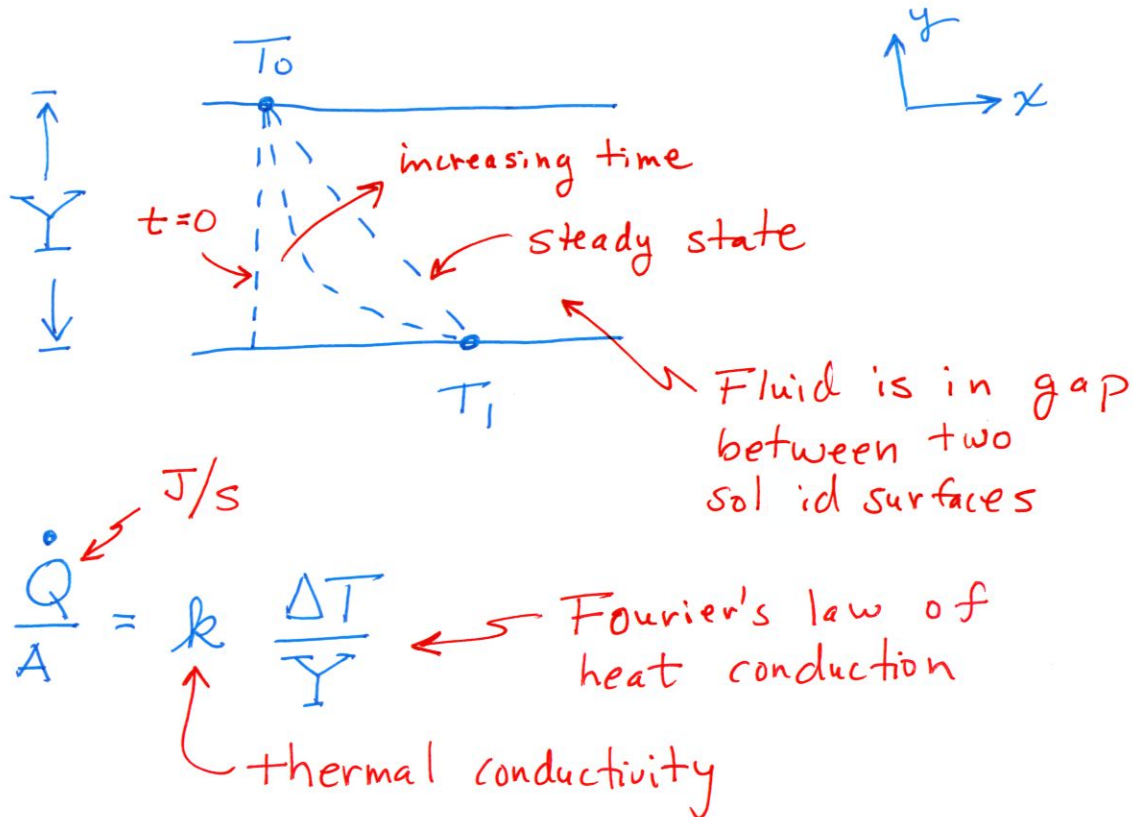 T₀
y
x
increasing time
Y
t=0
steady state
T₁
Fluid is in gap
between two
solid surfaces
J/s
Q̇/A = k ΔT/Y
Fourier's law of
heat conduction
thermal conductivity